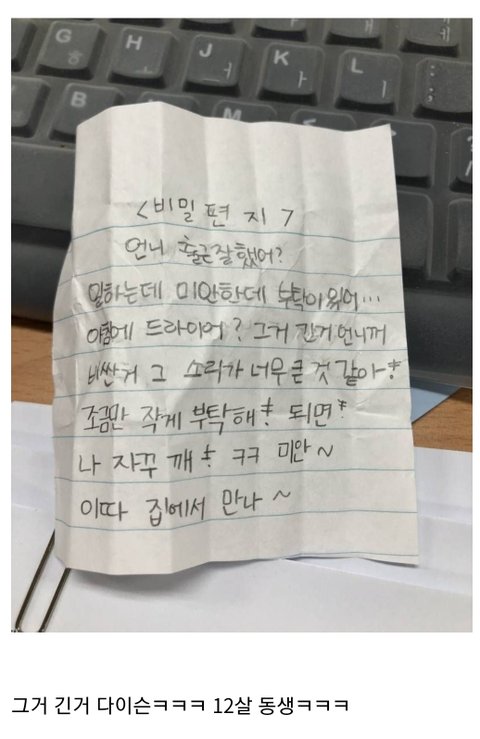 G ㅎ H J ㅓ K ㅏ L ㅣ
B M
<비밀 편 지 >
언니 출근잘했어?
일하는데 미안한데 부탁이있어...
아침에 드라이어? 그거 긴거 언니꺼
비싼거 그 소리가 너무큰 것 같아!
조금만 작게 부탁해! 되면!
나 자꾸 깨! ㅋㅋ 미안~
이따 집에서 만나~
그거 긴거 다이슨ㅋㅋㅋ 12살 동생ㅋㅋㅋ